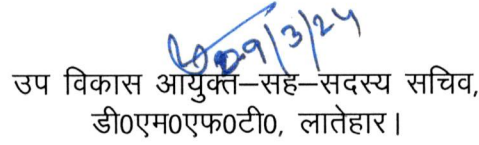 09/3/24
उप विकास आयुक्त–सह–सदस्य सचिव,
डी0एम0एफ0टी0, लातेहार।